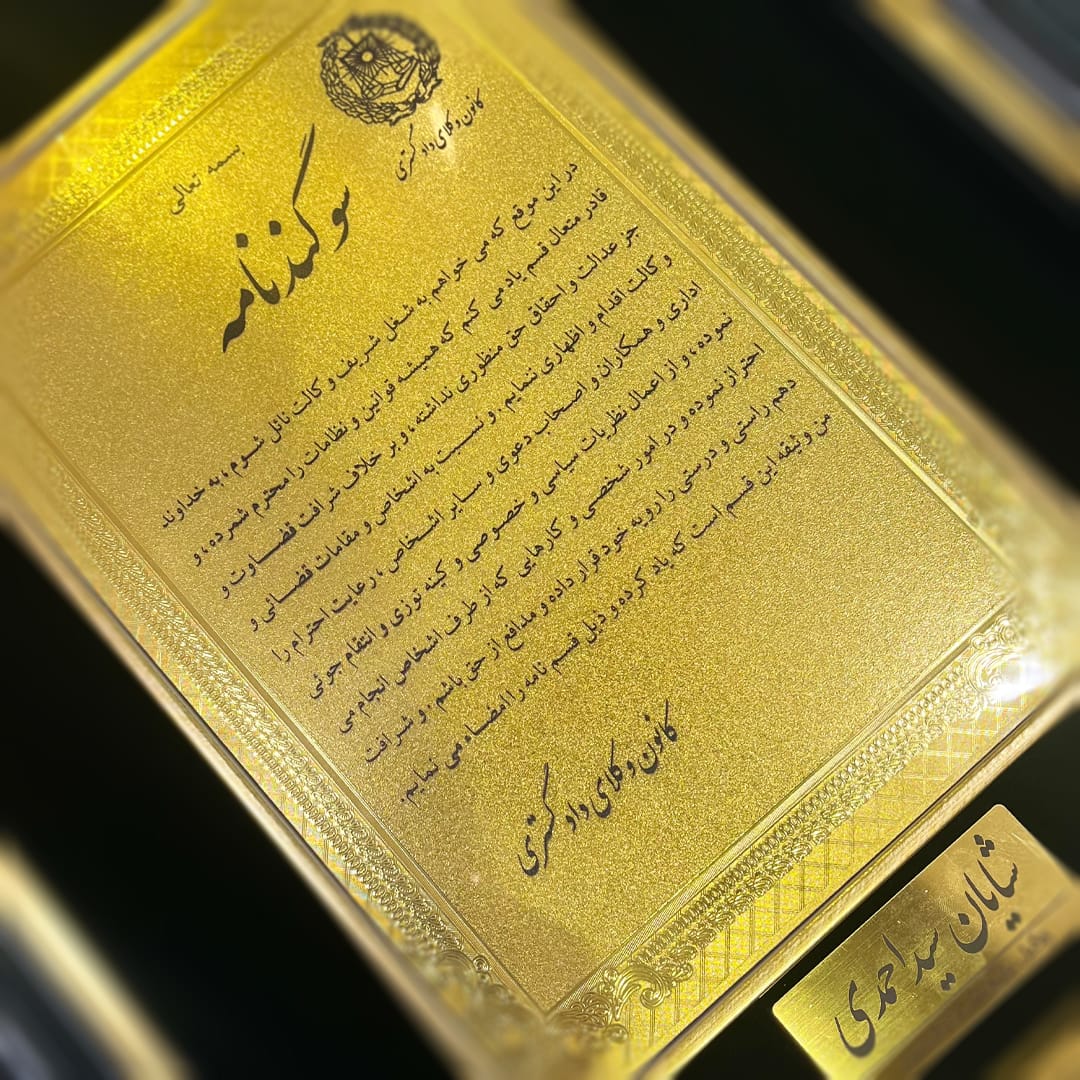 کانون وکلای دادگستری
بسمه تعالی
سوگندنامه
در این موقع که می خواهم به شغل شریف وکالت نائل شوم ، به خداوند
قادر متعال قسم یاد می کنم که همیشه قوانین و نظامات را محترم شمرده ، و
جز عدالت و احقاق حق منظوری نداشته ، و بر خلاف شرافت قضاوت و
وکالت اقدام و اظهاری ننمایم . و نسبت به اشخاص و مقامات قضائی و
اداری و همکاران و اصحاب دعوی و سایر اشخاص ، رعایت احترام را
نموده ، و از اعمال نظریات سیاسی و خصوصی و کینه توزی و انتقام جوئی
احتراز نموده و در امور شخصی و کارهایی که از طرف اشخاص انجام می
دهم راستی و درستی را رویه خود قرار داده و مدافع از حق باشم . و شرافت
من وثیقه این قسم است که یاد کرده و ذیل قسم نامه را امضاء می نمایم.
کانون وکلای دادگستری
شایان سیداحمدی